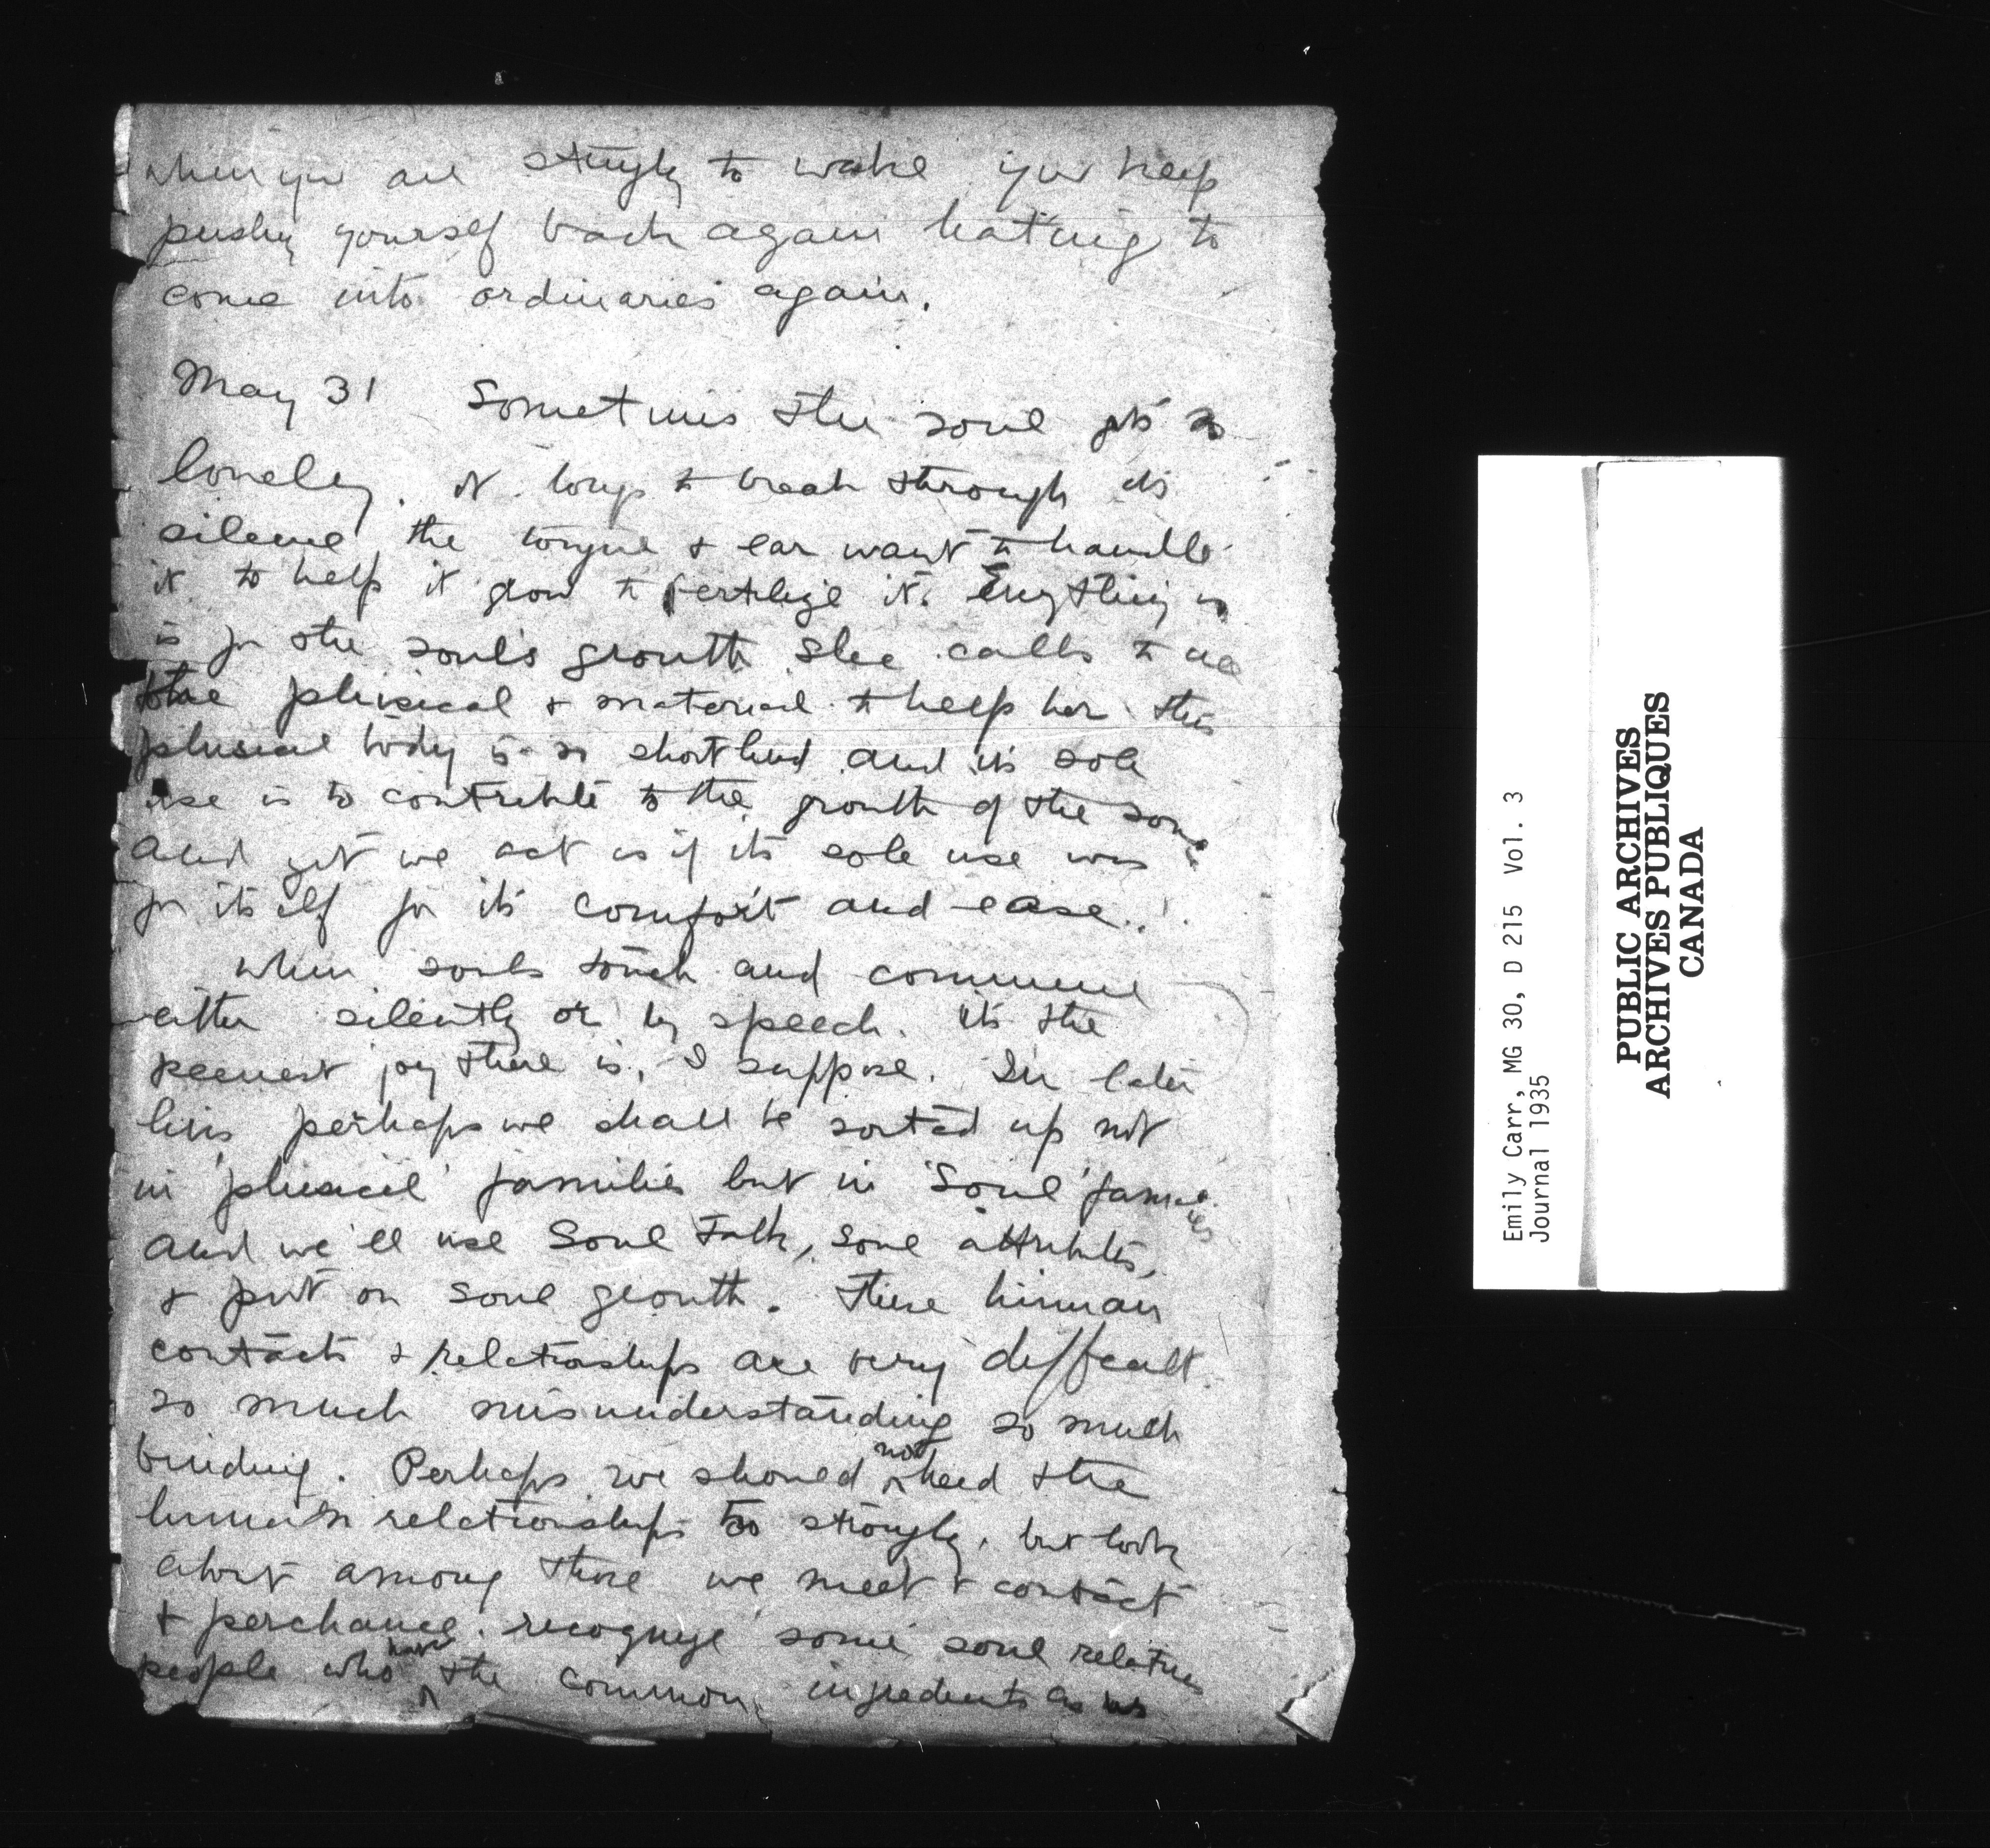 when you are strugly to wake you keep
pushing yourself back again hating to
come into ordinaries again.
May 31 Sometimes the soul gets so
lonely. it longs to break through its
silence the tongue & ear want to handle
it to help it grow to fertilize it. Everything
is for the soul's growth she calls to
the phisical & material to help her the
phisical body is so short lived and its sole
use is to contribute to the growth of the soul
and yet we act as if its sole use was
for itself for its comfort and ease.
When souls touch and commune
either silently or by speech. its the
keenest joy there is, I suppose. In later
lives perhaps we shall be sorted up not
in 'phisicil' families but in 'Soul' families
and we'll use Soul Talk, soul attributes,
& put on soul growth. These human
contacts & relationships are very difficult.
so much misunderstanding so much
binding. Perhaps we should not heed the
human relationships to strongly, but look
about among those we meet & contact
& perchance recognize some soul relatives
people who have the common ingredients as us
Emily Carr, MG 30, D 215 Vol. 3
Journal 1935
PUBLIC ARCHIVES
ARCHIVES PUBLIQUES
CANADA